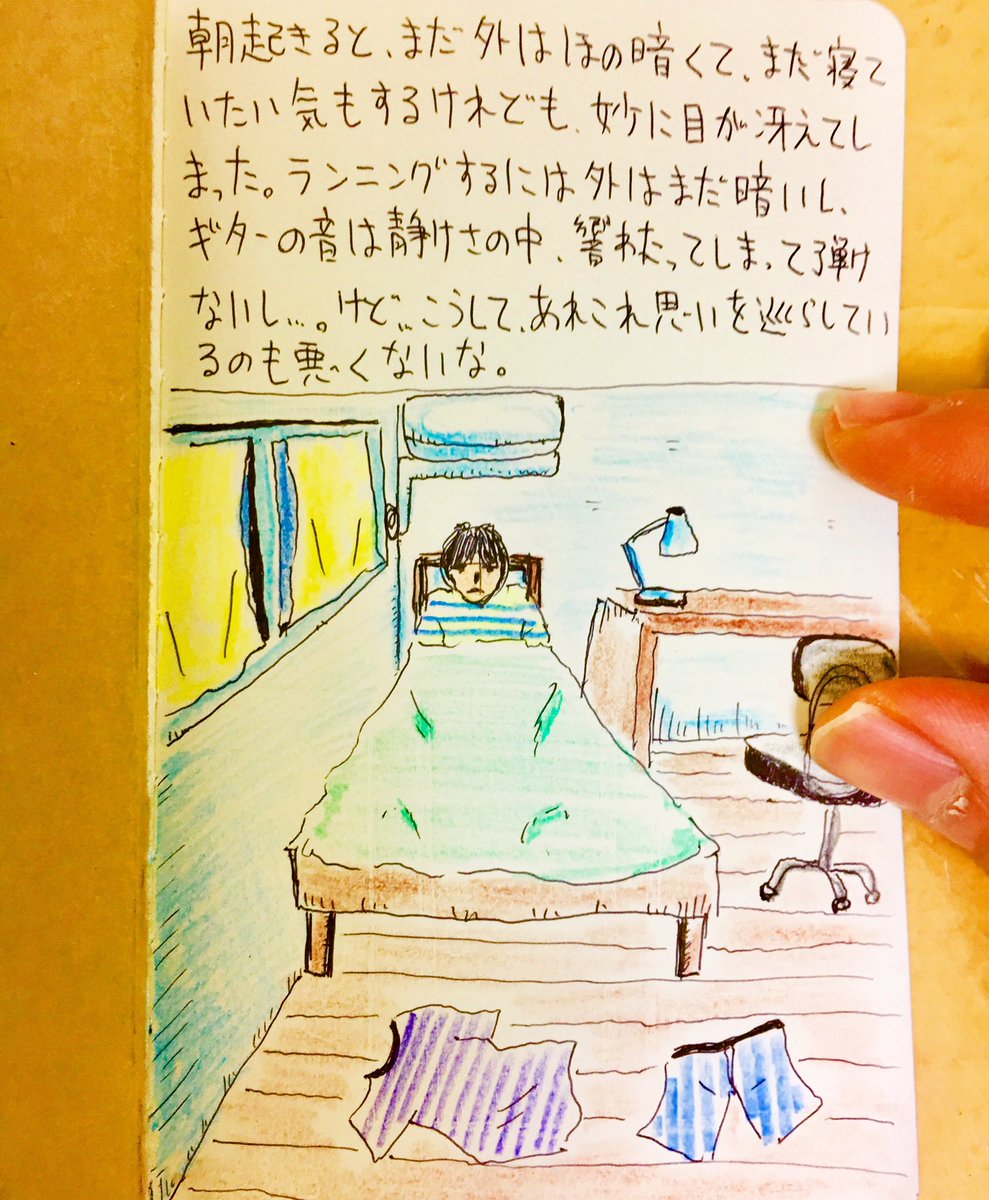 朝起きると、まだ外はほの暗くて、まだ寝て
いたい気もするけれども、妙に目が冴えてし
まった。ランニングするには外はまだ暗いし、
ギターの音は静けさの中、響わたってしまって弾け
ないし…。けど…こうして、あれこれ思いを巡らしてい
るのも悪くないな。